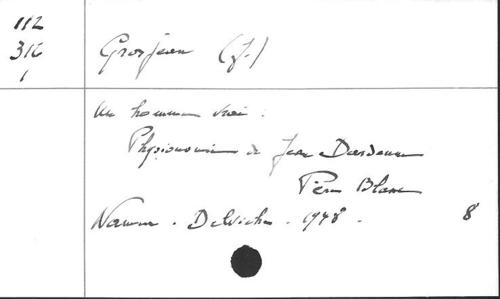 112
316
1
Grosjean (J.)
Un homme vrai :
Physionomie de Jean Dardenne
Père Blanc
Namur. Delvicks. 1948. 8